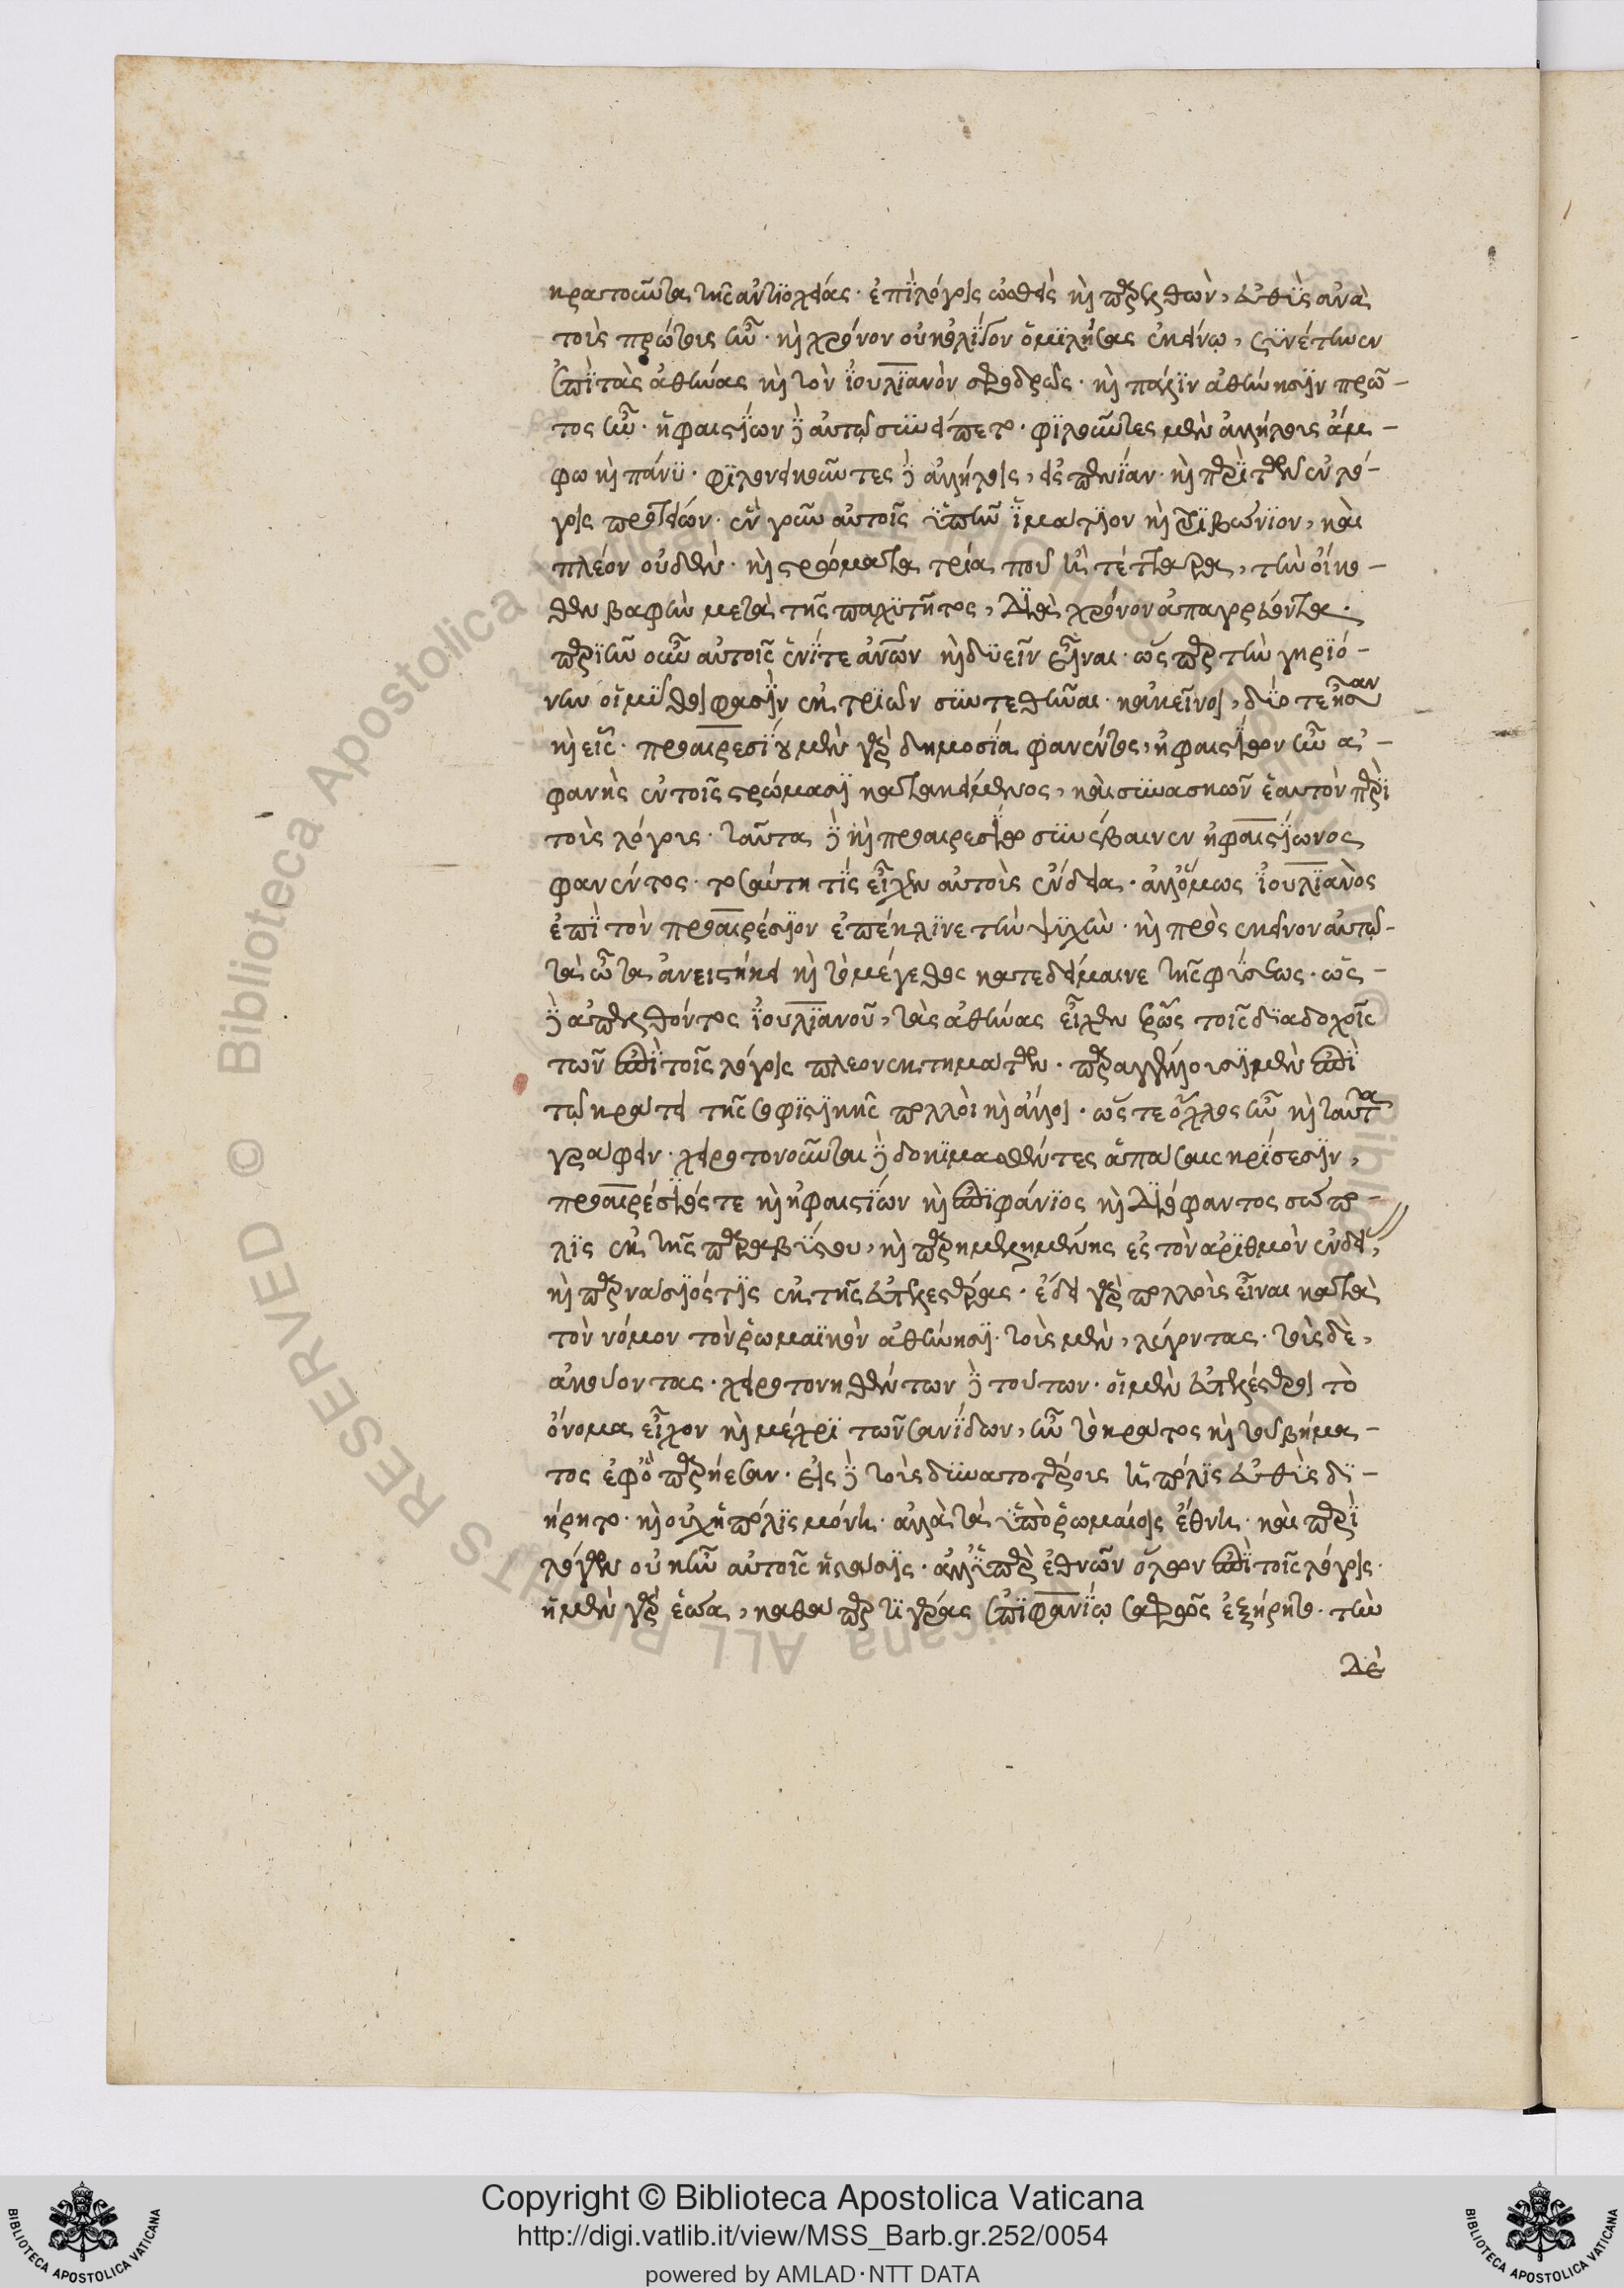 κρατοῦντα τῆς ἀντιοχείας. ἐπὶ λόγοις ὠσθεὶς καὶ παρελθὼν, εὐθὺς ἀνὰ
τοὺς πρώτους ἦν. καὶ χρόνον οὐκ ὀλίγον ὁμιλήσας ἐκείνῳ, συνέτεινεν
ἐπὶ τὰς ἀθήνας καὶ τὸν ἰουλιανὸν σφοδρῶς. καὶ πάλιν ἀθήνησιν πρῶ-
τος ἦν. ἡφαιστίων δὲ αὐτῷ συνείπετο. φιλοῦντες μὲν ἀλλήλους ἄμ-
φω καὶ πάνυ. φιλονεικοῦντες δὲ ἀλλήλοις, εἰς πενίαν. καὶ περὶ τῶν ἐν λό-
γοις πρωτείων. ἓν γοῦν αὐτοῖς ὑπῆν ἱμάτιον καὶ τριβώνιον, καὶ
πλέον οὐδέν. καὶ στρώματα τρία που ἢ τέτταρα, τὴν οἴκο-
θεν βαφὴν μετὰ τῆς παχύτητος, διὰ χρόνον ἀπαγορεύοντα.
περιῆν οὖν αὐτοῖς ἑνί τε ἀνῶν καὶ δυεῖν εἶναι. ὥσπερ τὴν γηρυό-
νην οἱ μῦθοι φασὶν ἐκ τριῶν συντεθῆναι. κἀκεῖνοι, δύο τε ἦσαν
καὶ εἷς. προαιρεσίου μὲν γὰρ δημοσία φανέντος, ἡφαιστίων ἦν ἀ-
φανὴς ἐν τοῖς στρώμασι κατακείμενος, καὶ συνασκῶν ἑαυτὸν περὶ
τοὺς λόγους. ταῦτα δὲ καὶ προαιρεσίῳ συνέβαινεν ἡφαιστίωνος
φανέντος. τοσαύτη τίς εἶχεν αὐτοὺς ἔνδεια. ἀλλ' ὅμως ἰουλιανὸς
ἐπὶ τὸν προαιρέσιον ἐπέκλινε τὴν ψυχὴν. καὶ πρὸς ἐκεῖνον αὐτῷ
τὰ ὦτα ἀνειστήκει καὶ τὸ μέγεθος κατεδείμαινε τῆς φύσεως. ὡς
δὲ ἀπελθόντος ἰουλιανοῦ, τὰς ἀθήνας εἶχεν ἔρως τοῖς διαδοχοῖς
τῶν ἐπὶ τοῖς λόγοις πλεονεκτημάτων. παραγγέλλουσι μὲν ἐπὶ
τῷ κράτει τῆς σοφιστικῆς πολλοὶ καὶ ἄλλοι. ὥστε ὄχλος ἦν καὶ ταῦτα
γράφειν. χειροτονοῦνται δὲ δοκιμασθέντες ἁπάσαις κρίσεσιν,
προαιρέσιός τε καὶ ἡφαιστίων καὶ ἐπιφάνιος καὶ διόφαντος σώπο-
λις ἐκ τῆς παραβύστου, καὶ παρημελημένης ἐς τὸν ἀριθμὸν ἐνδεί,
καὶ παρνάσιός τις ἐκ τῆς εὐτελεστέρας. ἔδει γὰρ πολλοὺς εἶναι κατὰ
τὸν νόμον τὸν ῥωμαϊκὸν ἀθήνησι. τοὺς μὲν, λέγοντας. τοὺς δὲ,
ἀκούοντας. χειροτονηθέντων δὲ τούτων. οἱ μὲν εὐτελέστεροι τὸ
ὄνομα εἶχον καὶ μέχρι τῶν σανίδων, ἦν τὸ κράτος καὶ τοῦ βήμα-
τος ἐφ' ὃ παρῄεσαν. εἰς δὲ τοὺς δυνατωτέρους ἡ πόλις εὐθὺς δι-
ῄρητο. καὶ οὐχ ἡ πόλις μόνη. ἀλλὰ τὰ ὑπὸ ῥωμαίοις ἔθνη. καὶ περὶ
λόγων οὐκ ἦν αὐτοῖς ἡ στάσις. ἀλλ' ὑπὲρ ἐθνῶν ὅλων ἐπὶ τοῖς λόγοις.
ἡ μὲν γὰρ ἑῴα, καθάπερ τι γέρας ἐπιφανίῳ σαφῶς ἐξῄρητο. τὴν
δὲ
Copyright © Biblioteca Apostolica Vaticana
http://digi.vatlib.it/view/MSS_Barb.gr.252/0054
powered by AMLAD·NTT DATA